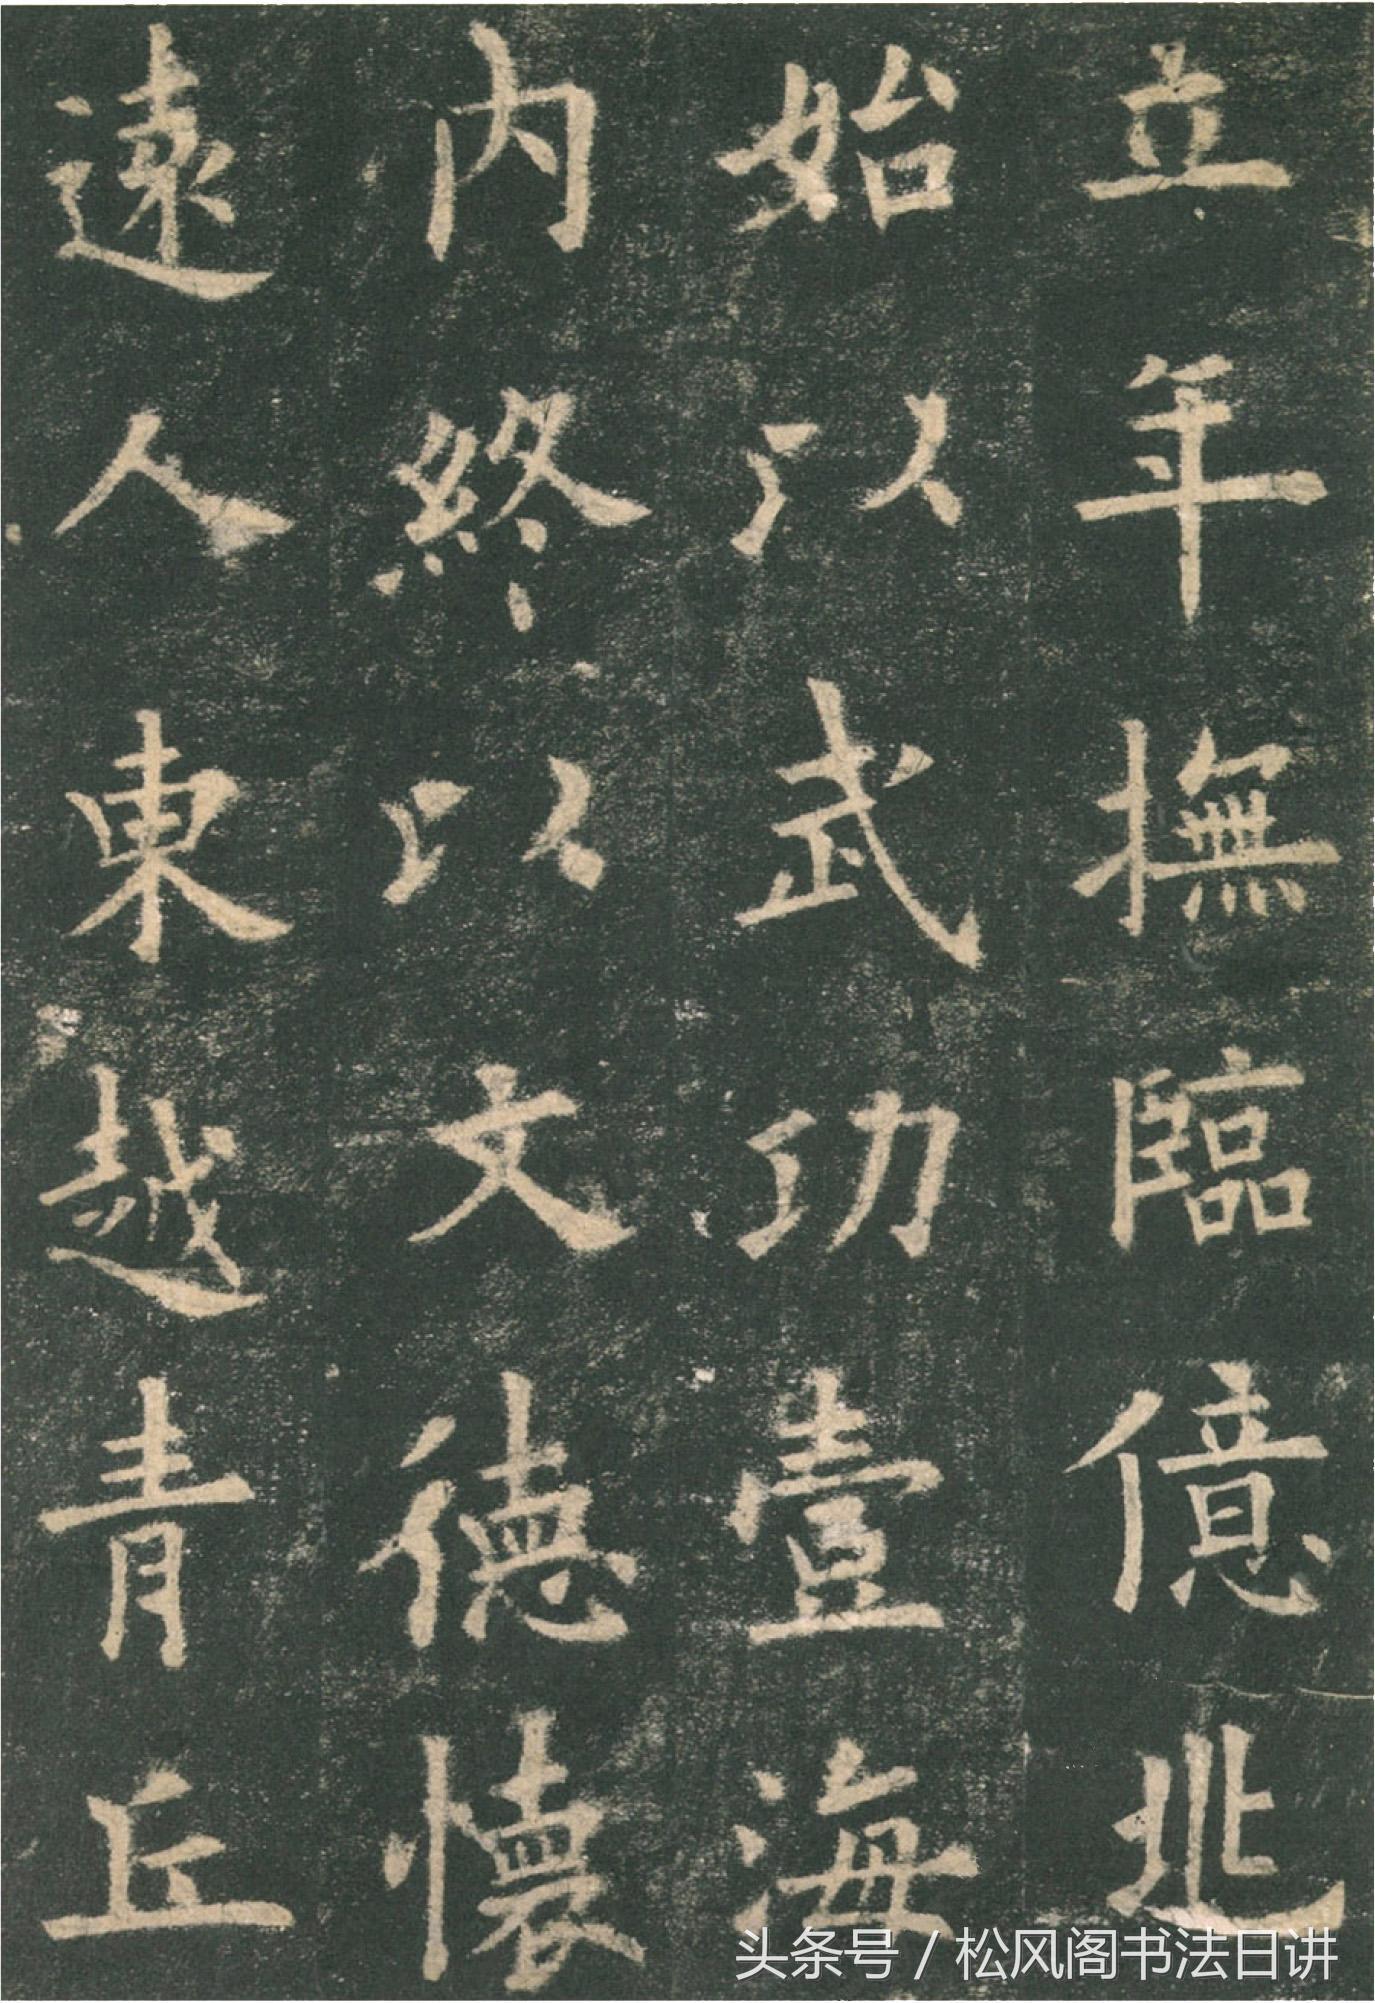 立年撫臨億兆
始以武功壹海
内終以文德懷
遠人東越青丘
头条号 / 松风阁书法日讲